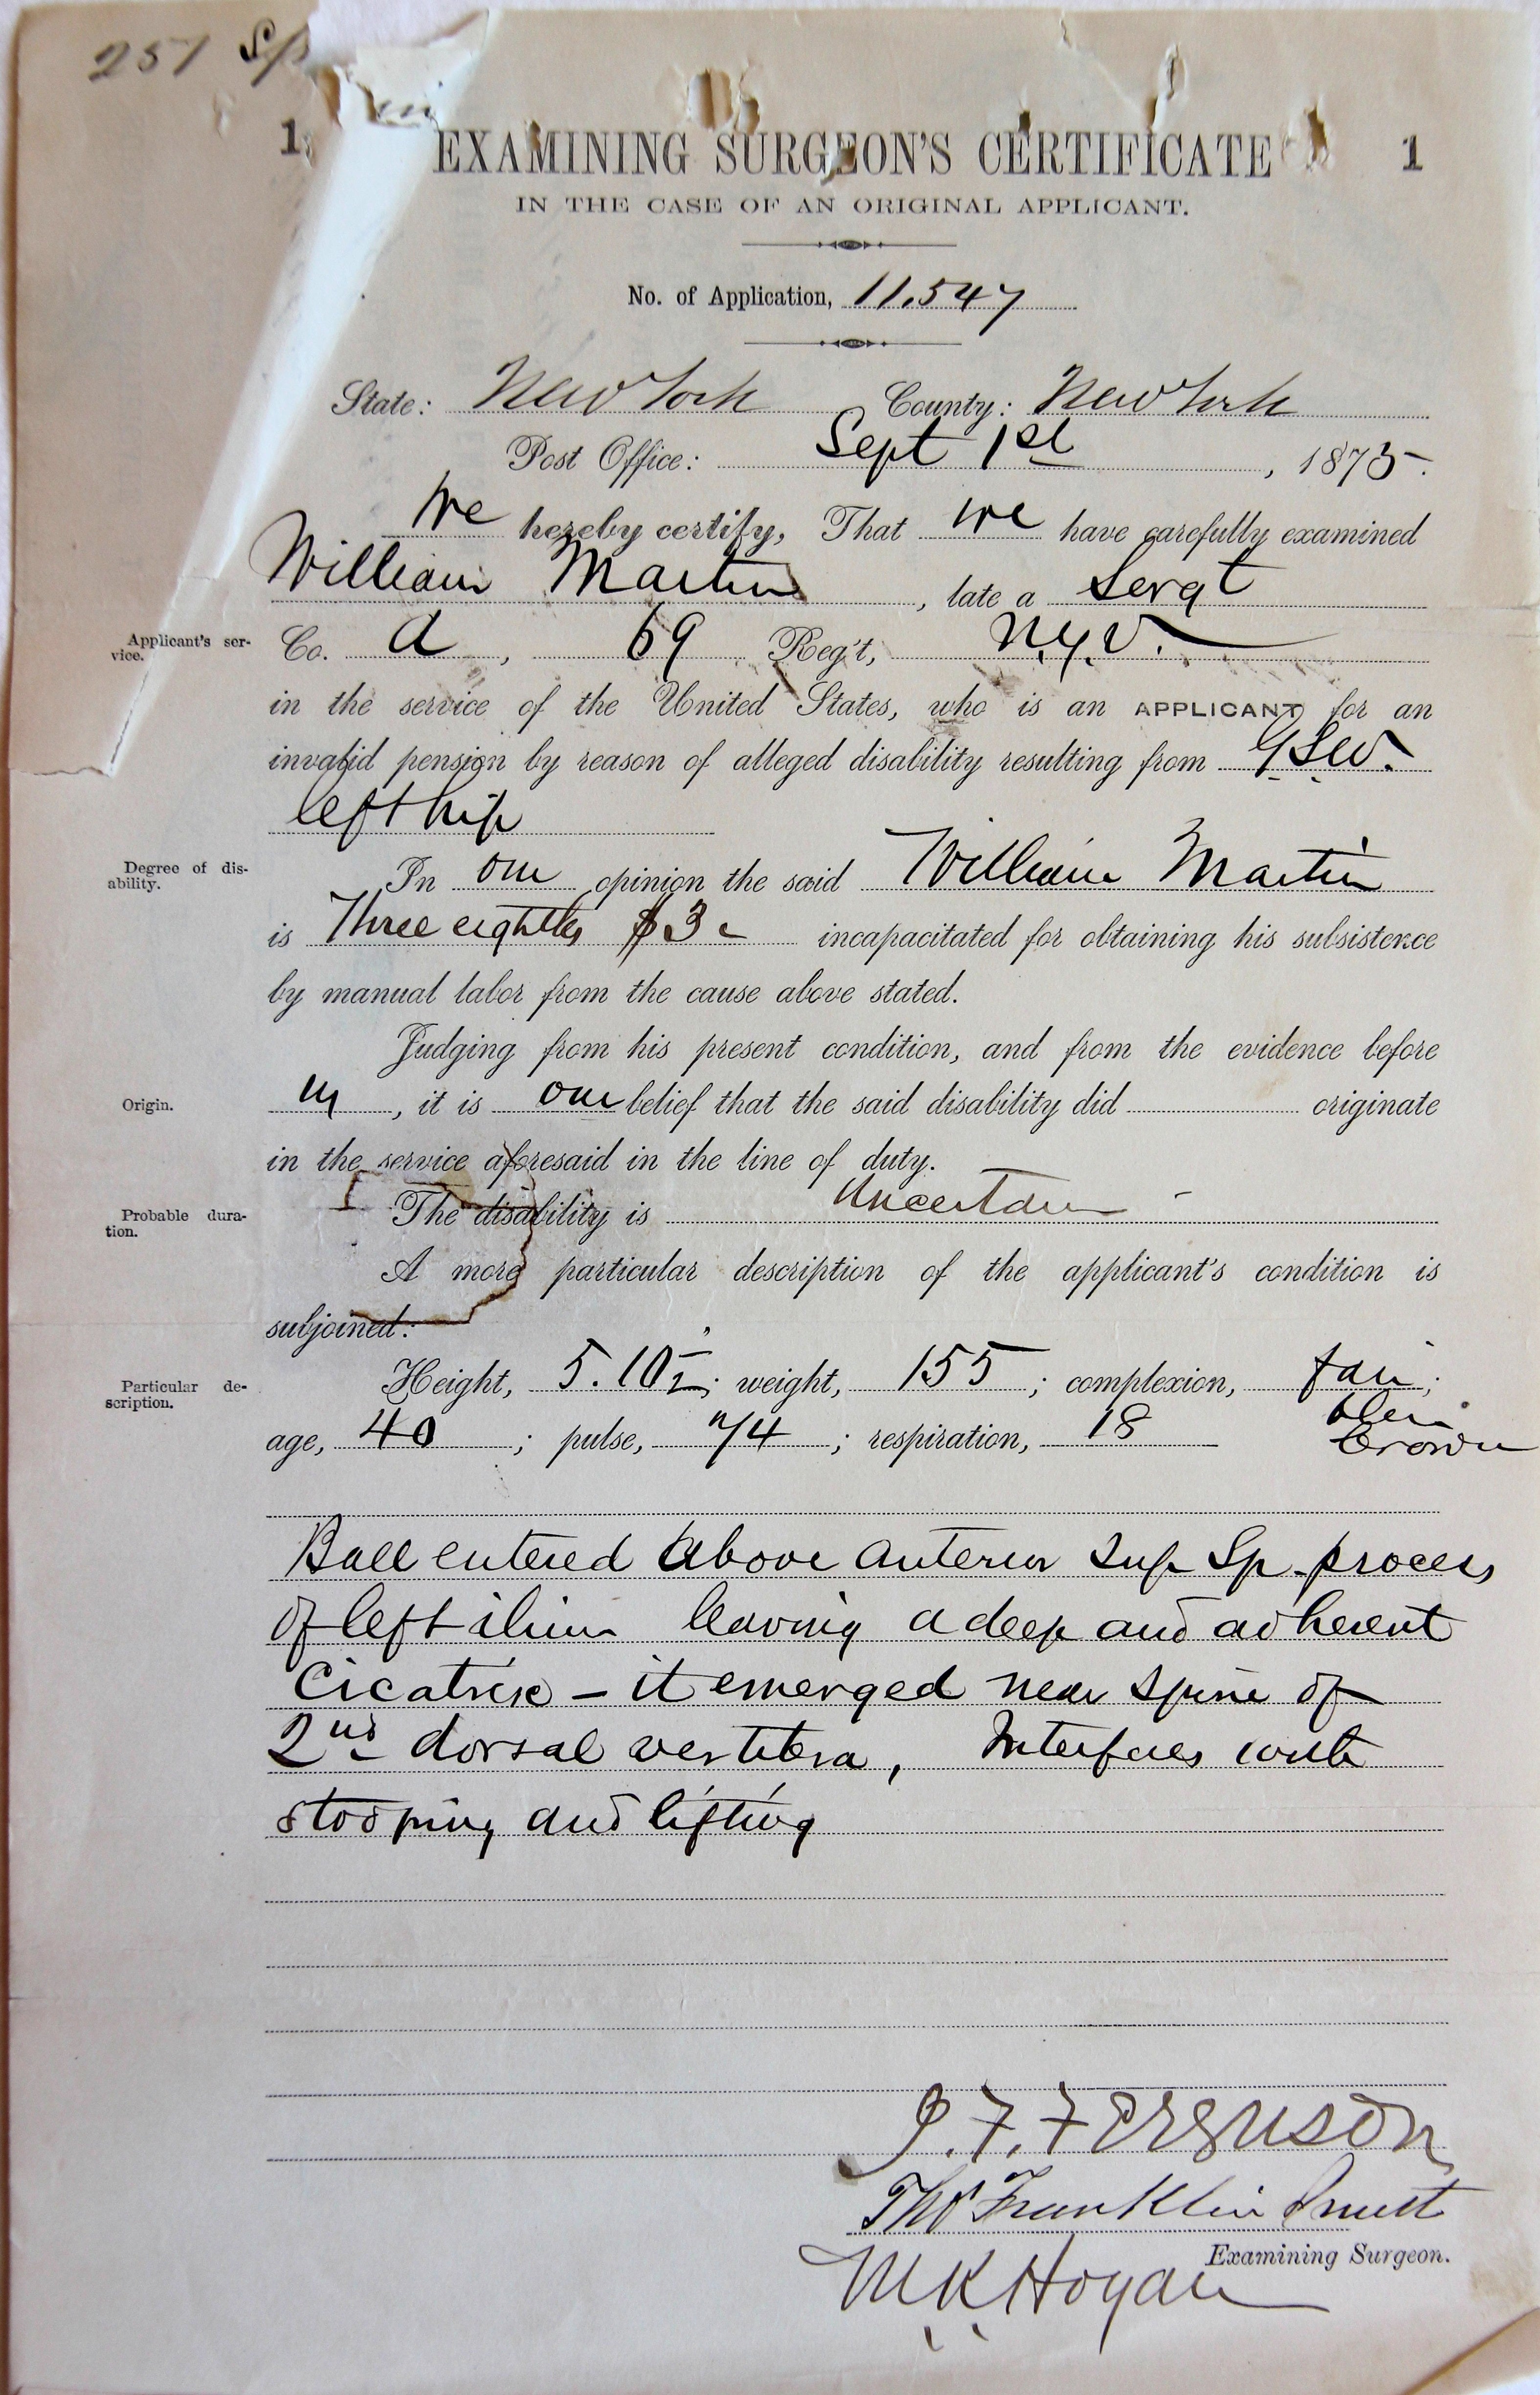 251 Sp
1 EXAMINING SURGEON'S CERTIFICATE 1
IN THE CASE OF AN ORIGINAL APPLICANT.
No. of Application, 11.547
State: New York County: New York
Post Office: Sept 1st, 1875.
We hereby certify, That we have carefully examined
William Martin, late a Sergt
Applicant's ser-
vice.
Co. A, 69 Reg't, N.Y.V.
in the service of the United States, who is an APPLICANT for an
invalid pension by reason of alleged disability resulting from G.S.W.
left hip
Degree of dis-
ability.
In our opinion the said William Martin
is Three eighths $3 incapacitated for obtaining his subsistence
by manual labor from the cause above stated.
Judging from his present condition, and from the evidence before
Origin.
us, it is our belief that the said disability did originate
in the service aforesaid in the line of duty.
Probable dura-
tion.
The disability is Uncertain -
A more particular description of the applicant's condition is
subjoined:
Particular de-
scription.
Height, 5.10½; weight, 155; complexion, fair;
age, 40; pulse, 74; respiration, 18
brown
Ball entered above anterior Sup Sp. process
of left ilium leaving a deep and adherent
Cicatrix - it emerged near spine of
2nd dorsal vertebra, Interferes with
stooping and lifting
J. F. Ferguson
Thos Franklin Smith
Examining Surgeon.
M K Hogan